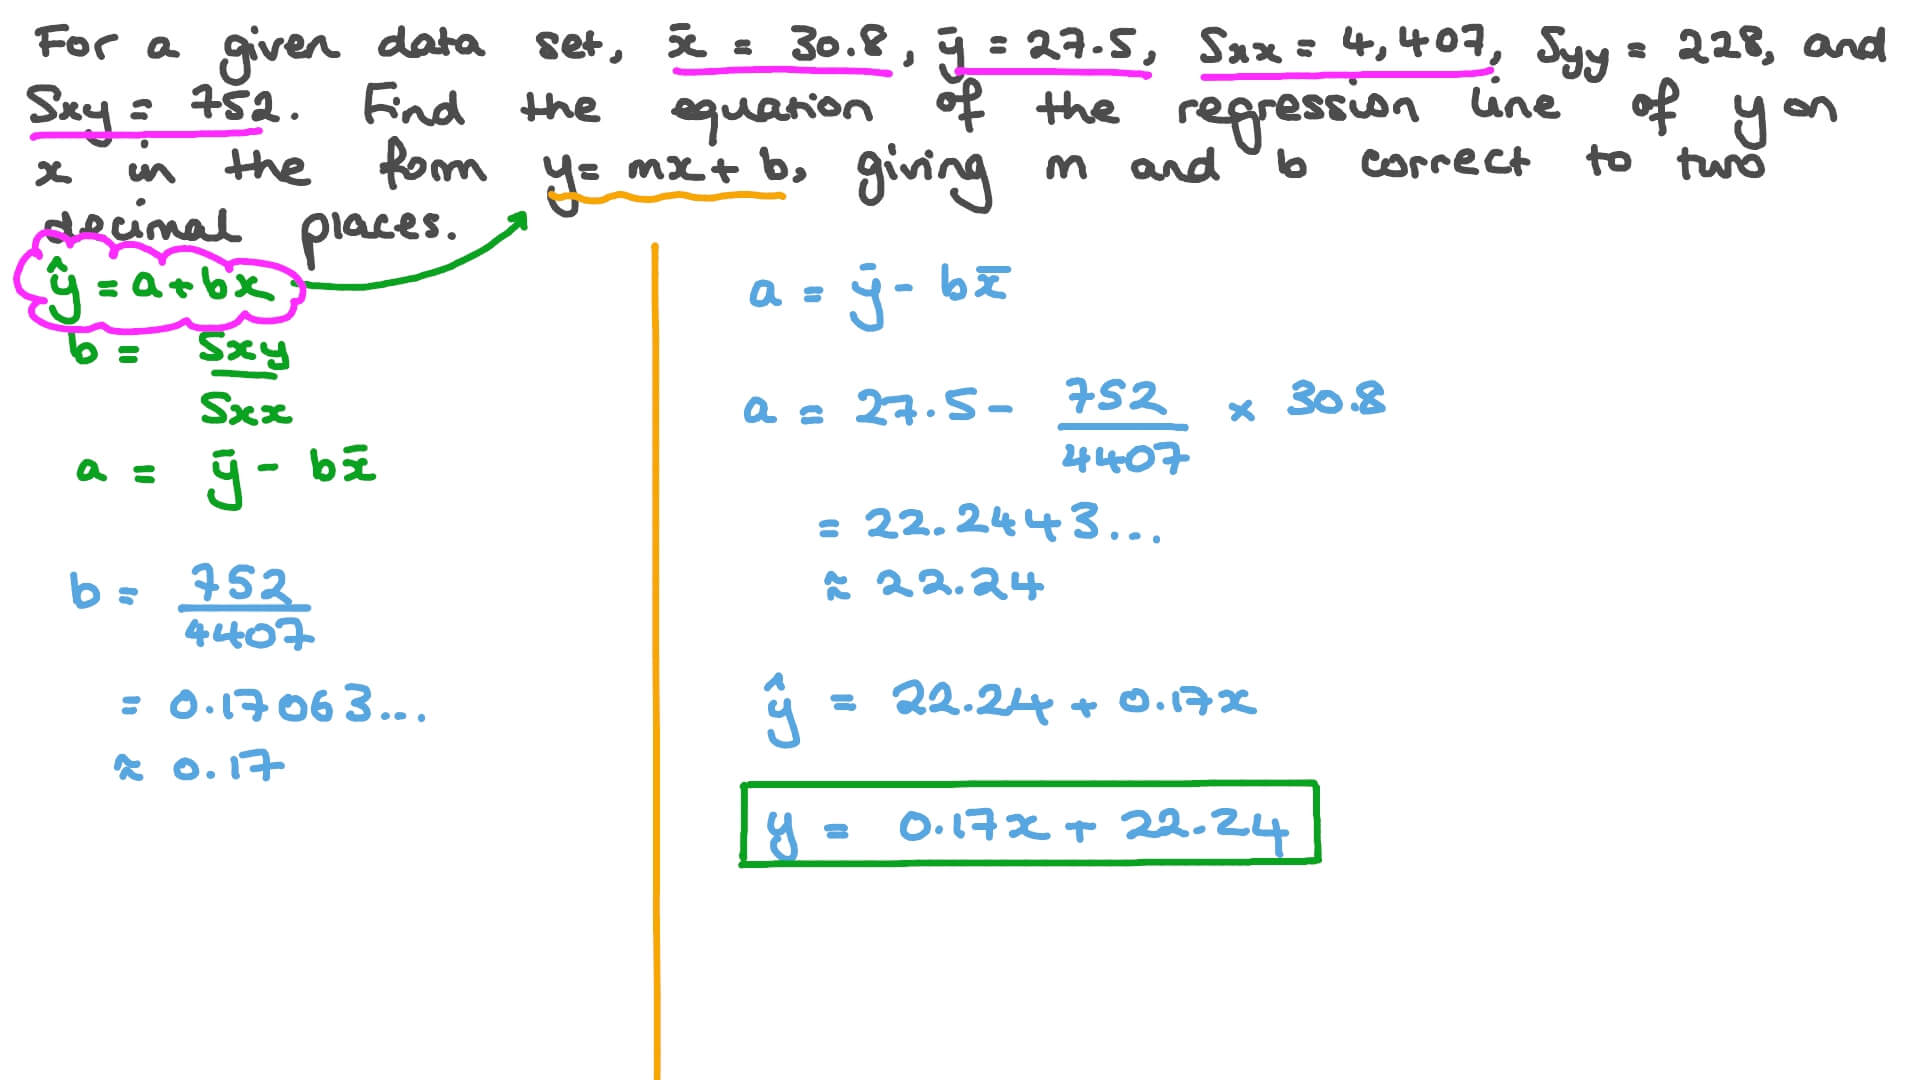 For a given data set, x̄ = 30.8, ȳ = 27.5, Sxx = 4,407, Syy = 228, and
Sxy = 752. Find the equation of the regression line of y on
x in the form y = mx + b, giving m and b correct to two
decimal places.
ŷ = a + bx
b = Sxy
Sxx
a = ȳ - bx̄
b = 752
4407
= 0.17063...
≈ 0.17
a = ȳ - bx̄
a = 27.5 - 752 × 30.8
4407
= 22.2443...
≈ 22.24
ŷ = 22.24 + 0.17x
y = 0.17x + 22.24